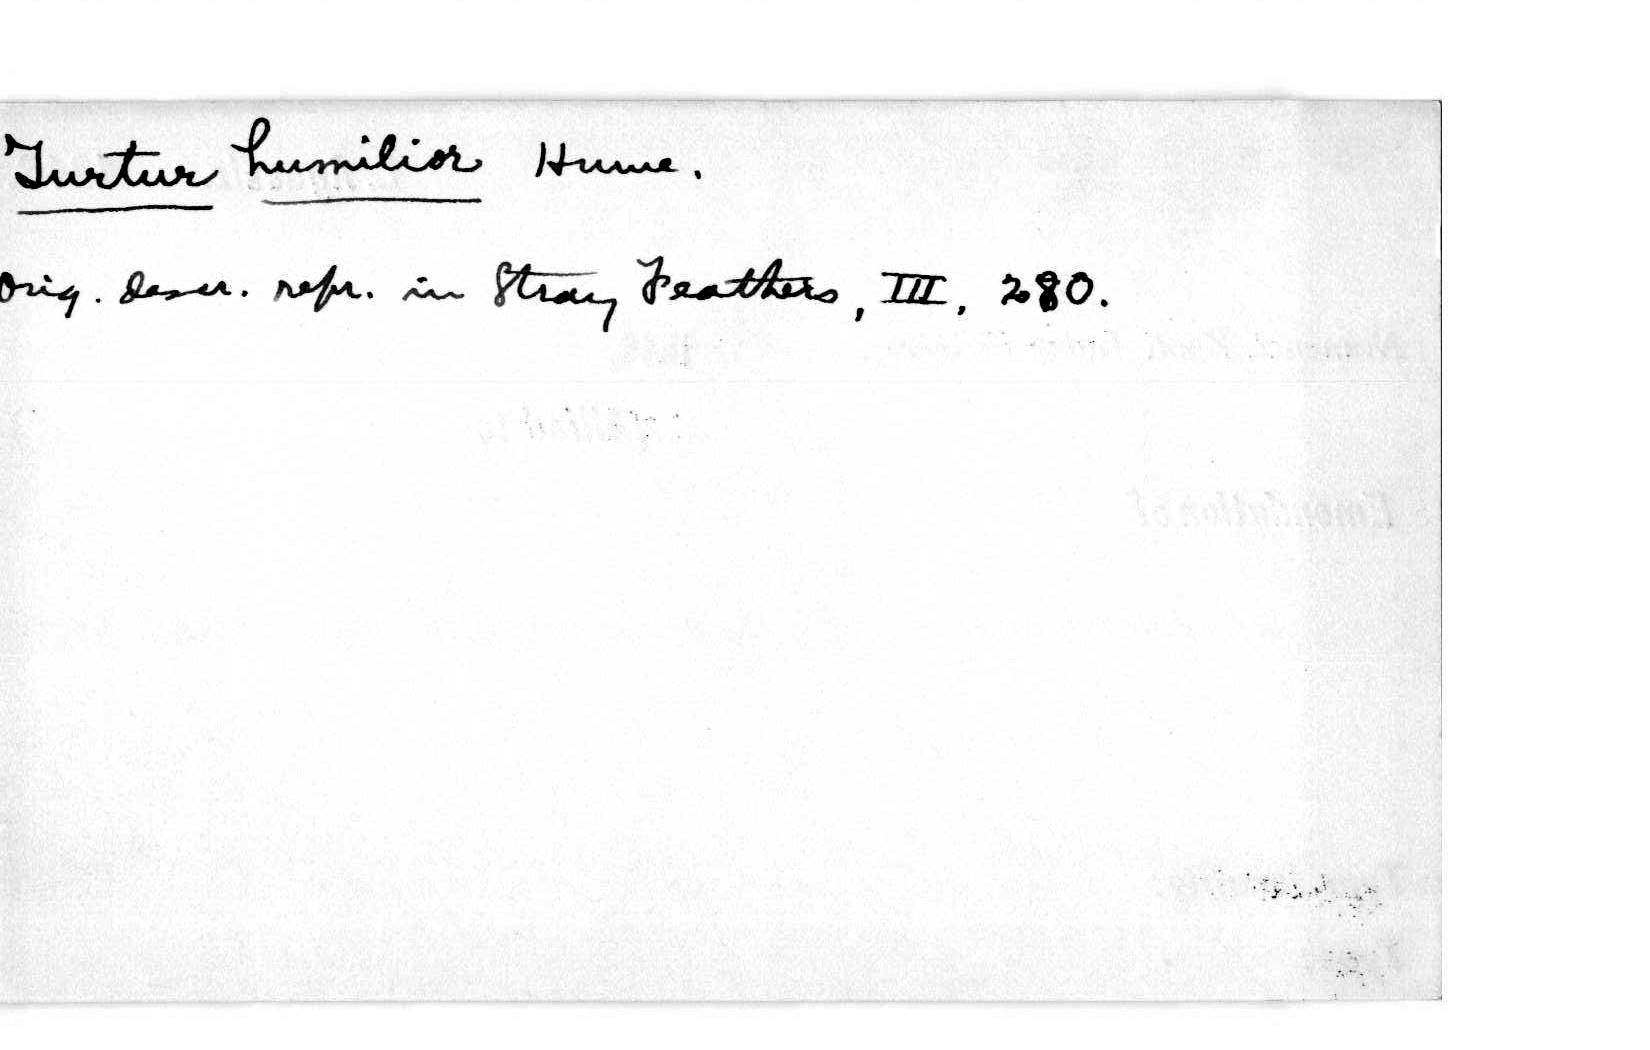 Turtur humilior Hume.
Orig. descr. repr. in Stray Feathers, III, 280.